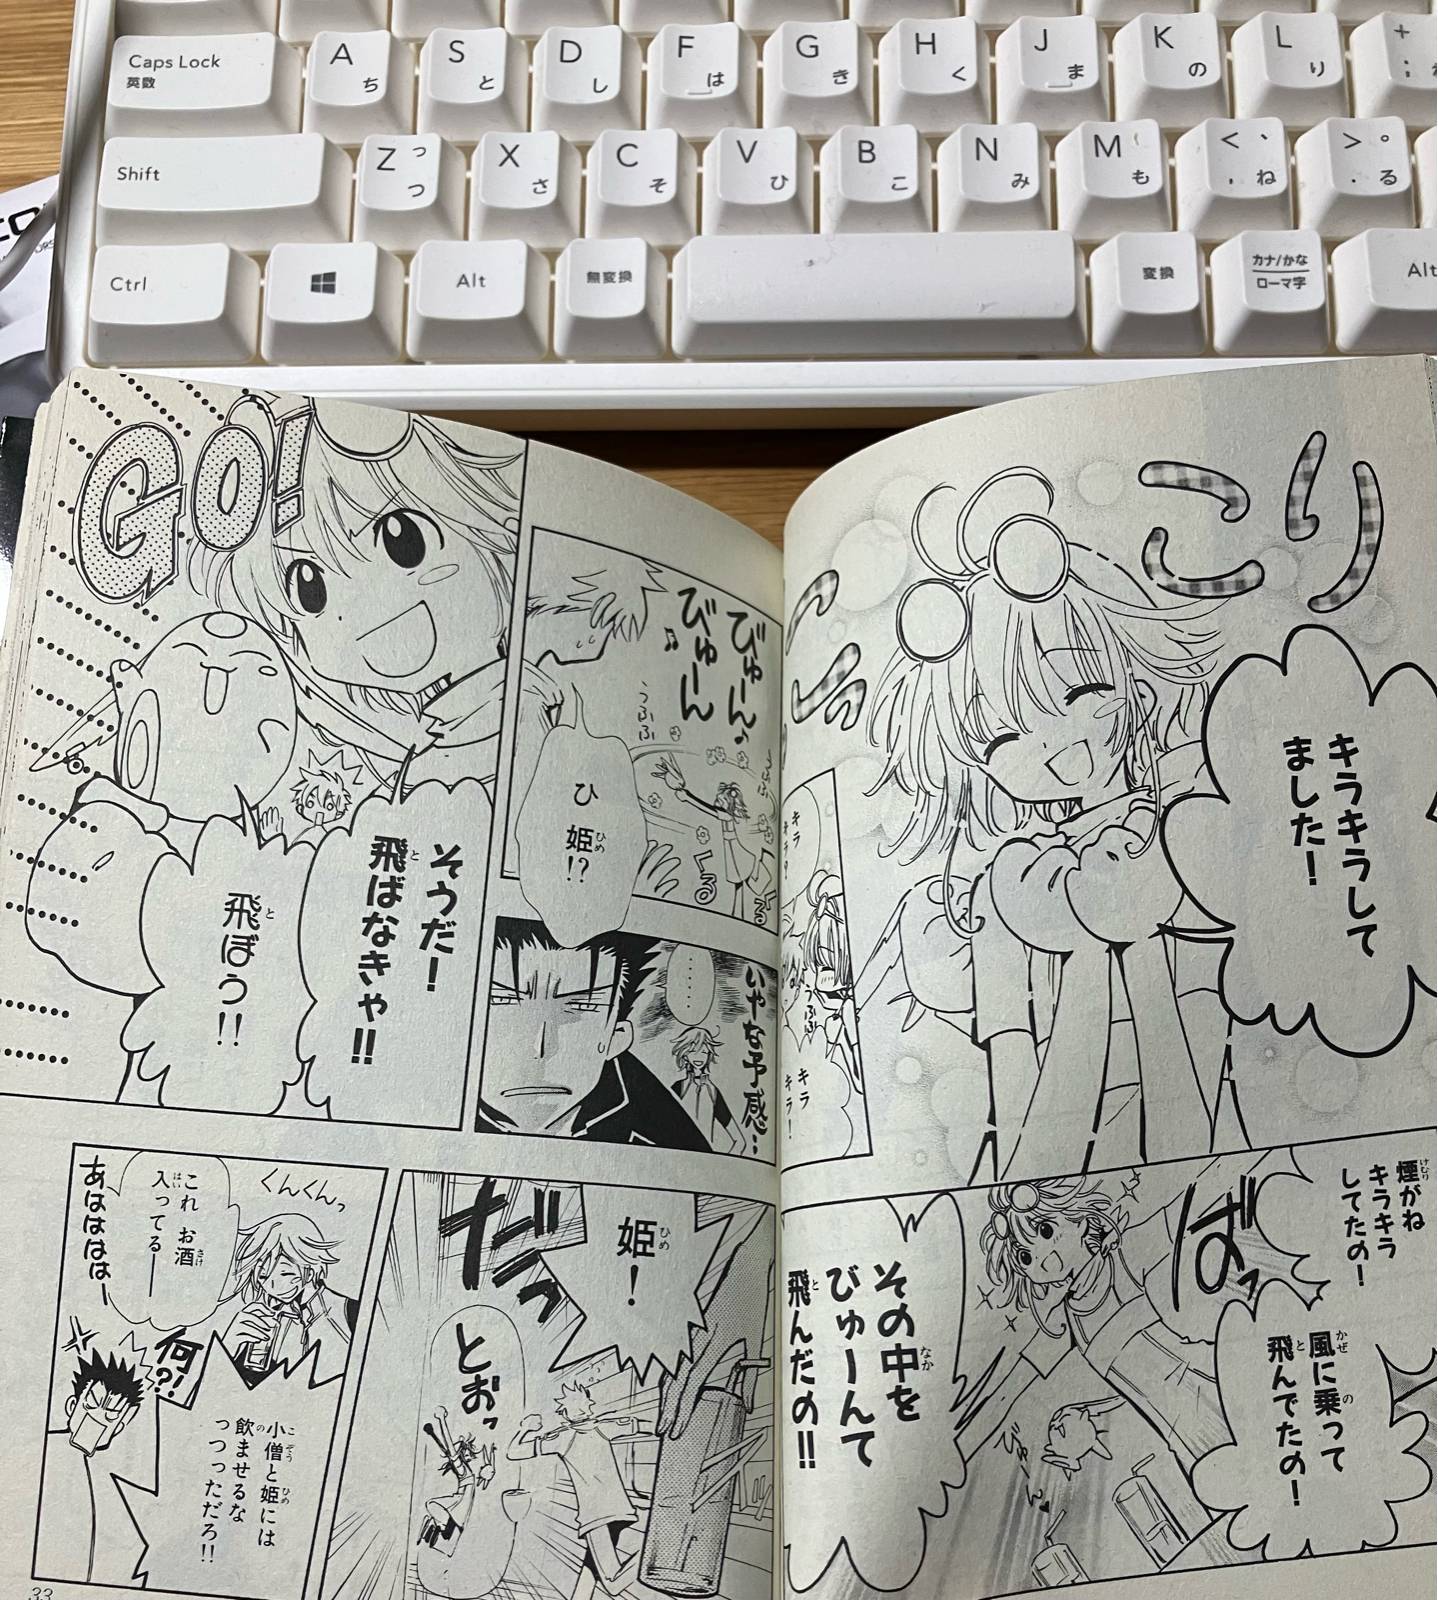 Caps Lock
英数
A ち
S と
D し
F は
G き
H く
J ま
K の
L り
+
;
Shift
Z っ
つ
X さ
C そ
V ひ
B こ
N み
M も
< 、
, ね
> 。
. る
Ctrl
Alt
無変換
変換
カナ/かな
ローマ字
Alt
こり
キラキラして
ました!
キラ
キラ
うふふ
キラ
キラ!
煙がね
キラキラ
してたの!
ばっ
風に乗って
飛んでたの!
その中を
びゅーんて
飛んだの!!
びゅーん♪
びゅーん♫
うふふ
ひ
姫!?
くる
くる
いやな予感…
……
GO!
そうだ!
飛ばなきゃ!!
飛ぼう!!
姫!
だっ
とおっ
くんくんっ
これ お酒
入ってる――
あはははは―
何?!
小僧と姫には
飲ませるな
っつっただろ!!
33